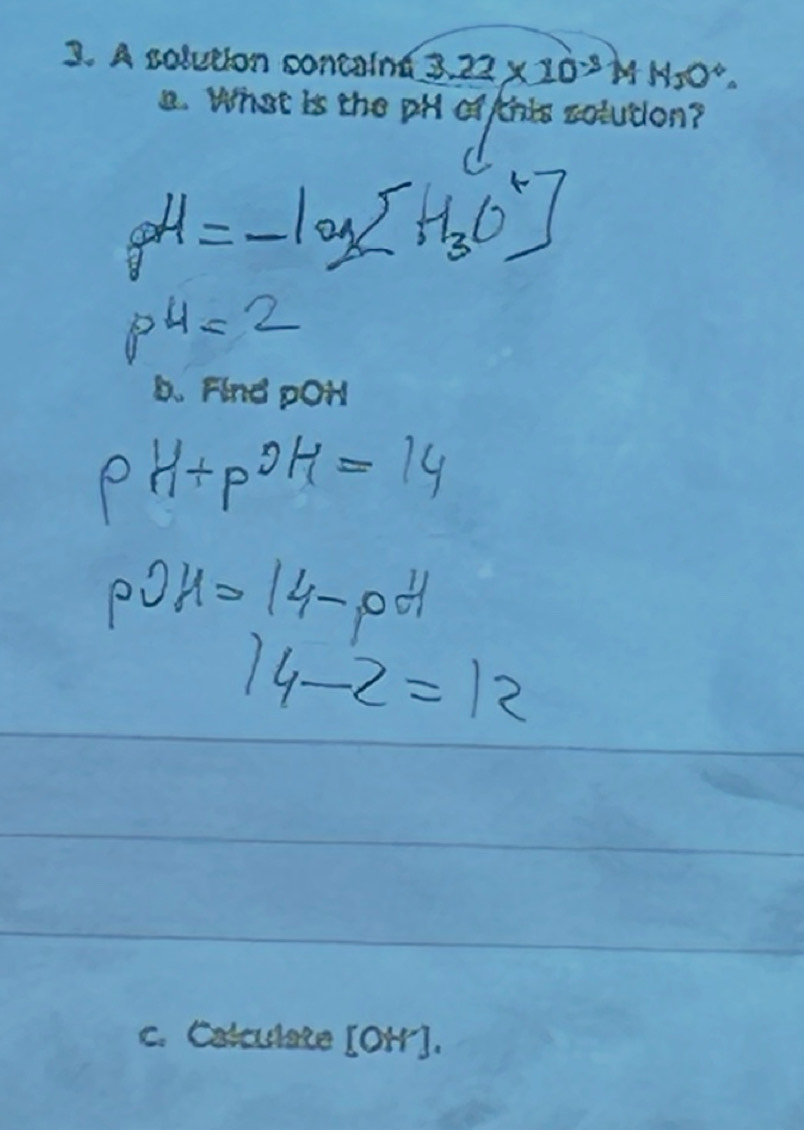 3. A solution contains 3.22 x 10⁻³ M H₃O⁺.
a. What is the pH of this solution?
pH = -log[H₃O⁺]
pH = 2
b. Find pOH
pH + pOH = 14
pOH = 14 - pH
14 - 2 = 12
c. Calculate [OH⁻].